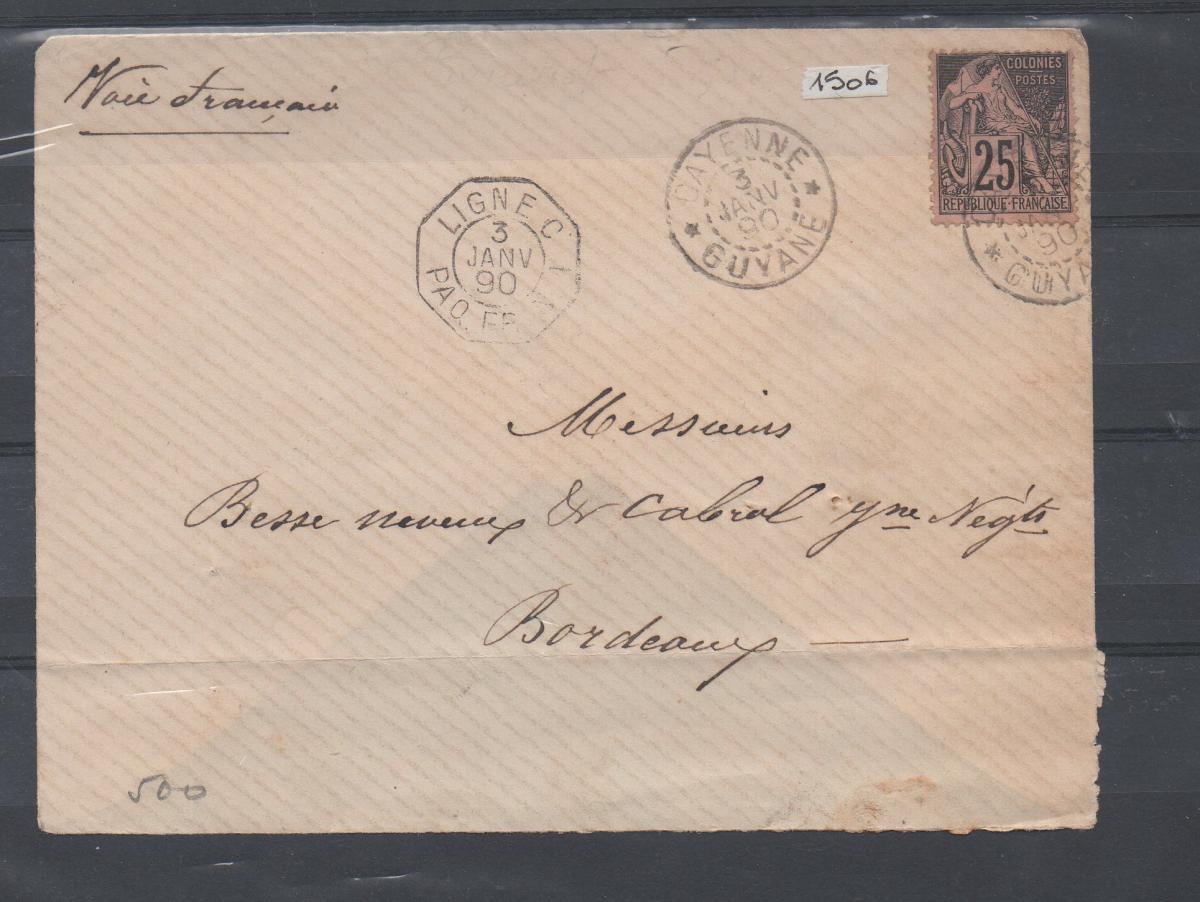 Voie français
1506
COLONIES
POSTES
25
RÉPUBLIQUE-FRANÇAISE
CAYENNE
3
JANV
90
GUYANE
LIGNE C
3
JANV
90
PAQ. FR.
90
GUYA
Messieurs
Besse neveux & Cabrol jne Négts
Bordeaux
500